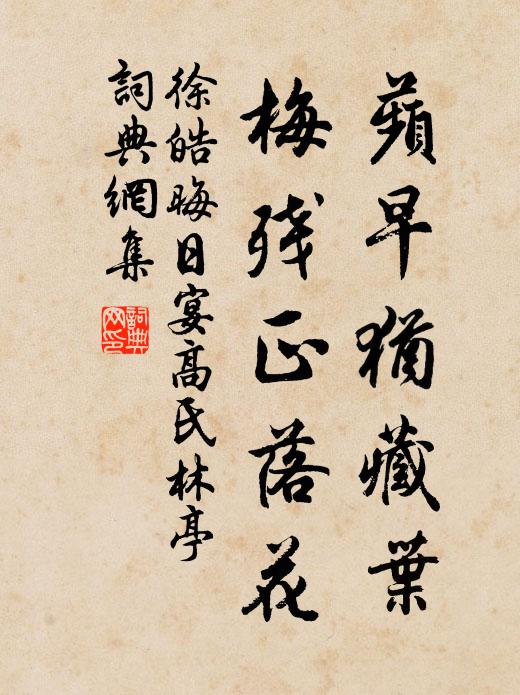 蘋早猶藏葉
梅残正落花
徐皓晦日宴高氏林亭
詞典網集
詞典
网印